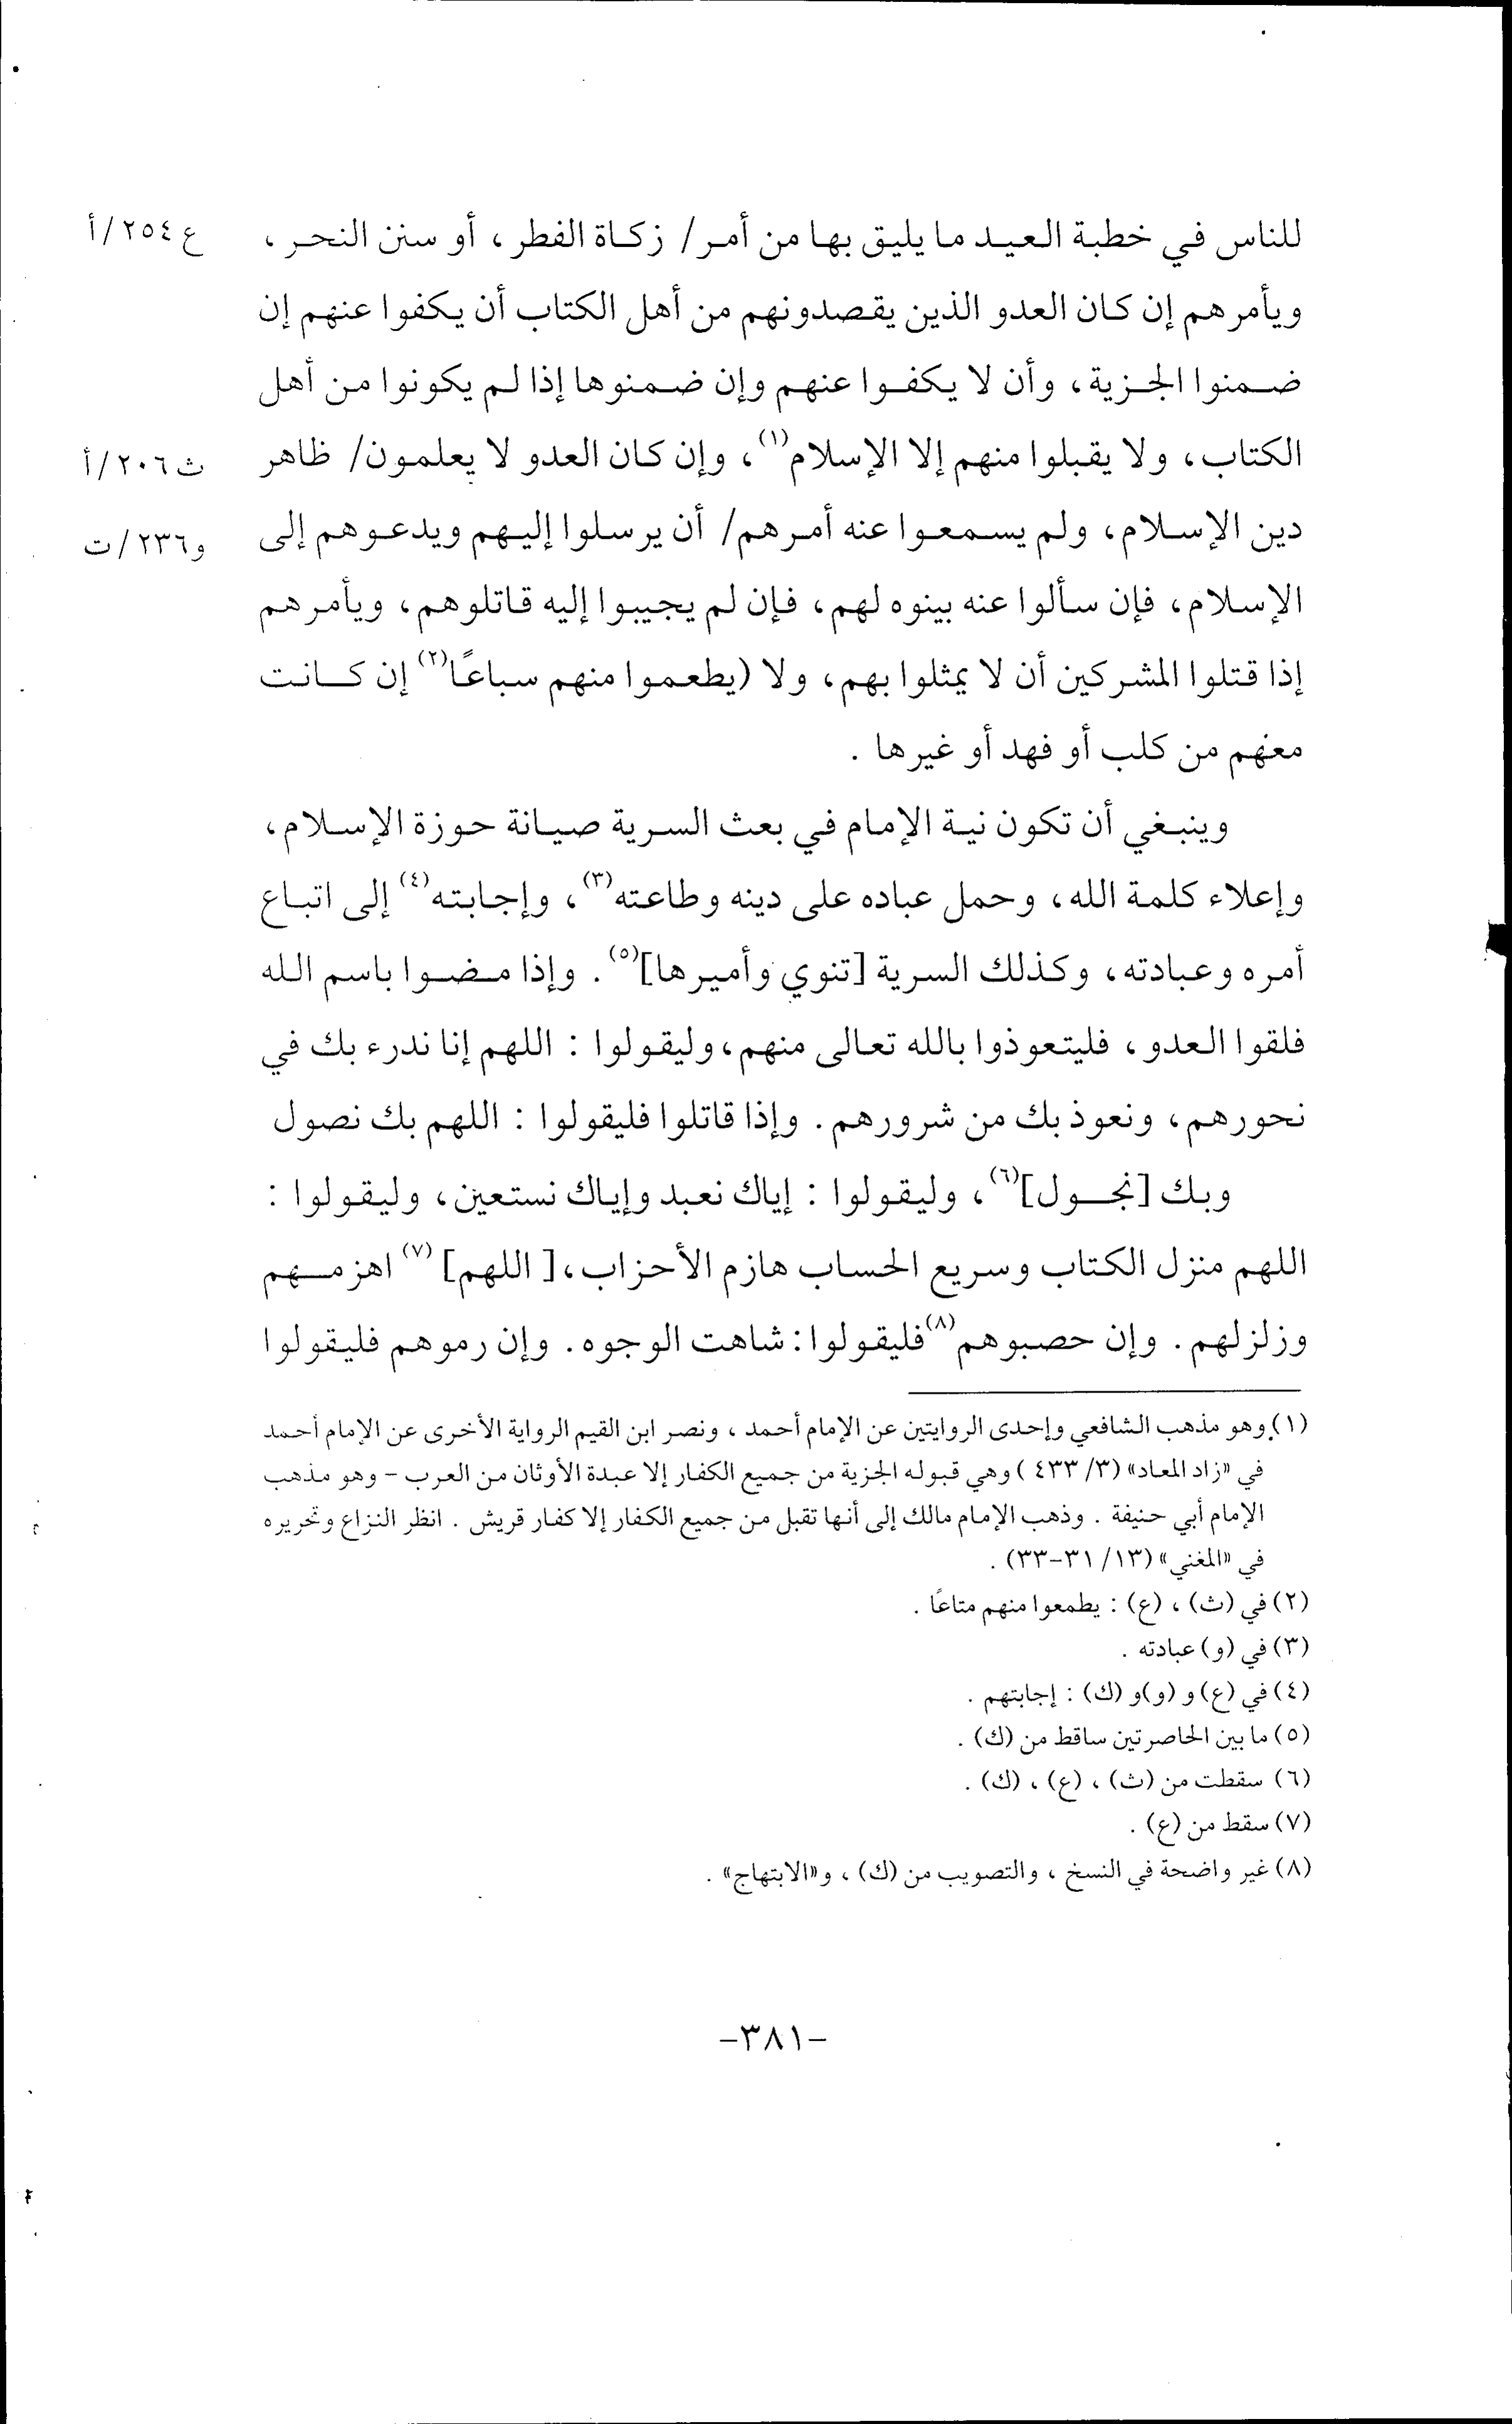 للناس في خطبة العيد ما يليق بها من أمر/ زكاة الفطر، أو سنن النحر، ع٢٥٤/أ
ويأمرهم إن كان العدو الذين يقصدونهم من أهل الكتاب أن يكفوا عنهم إن
ضمنوا الجزية، وأن لا يكفوا عنهم وإن ضمنوها إذا لم يكونوا من أهل
الكتاب، ولا يقبلوا منهم إلا الإسلام(١)، وإن كان العدو لا يعلمون/ ظاهر ث٢٠٦/أ
دين الإسلام، ولم يسمعوا عنه أمرهم/ أن يرسلوا إليهم ويدعوهم إلى و٢٣٦/ت
الإسلام، فإن سألوا عنه بينوه لهم، فإن لم يجيبوا إليه قاتلوهم، ويأمرهم
إذا قتلوا المشركين أن لا يمثلوا بهم، ولا (يطعموا منهم سباعًا(٢) إن كانت
معهم من كلب أو فهد أو غيرها .
وينبغي أن تكون نية الإمام في بعث السرية صيانة حوزة الإسلام،
وإعلاء كلمة الله، وحمل عباده على دينه وطاعته(٣)، وإجابته(٤) إلى اتباع
أمره وعبادته، وكذلك السرية [تنوي وأميرها](٥). وإذا مضوا باسم الله
فلقوا العدو، فليتعوذوا بالله تعالى منهم، وليقولوا : اللهم إنا ندرء بك في
نحورهم، ونعوذ بك من شرورهم. وإذا قاتلوا فليقولوا : اللهم بك نصول
وبك [نجول](٦)، وليقولوا : إياك نعبد وإياك نستعين، وليقولوا :
اللهم منزل الكتاب وسريع الحساب هازم الأحزاب،[ اللهم] (٧) اهزمهم
وزلزلهم. وإن حصبوهم(٨) فليقولوا: شاهت الوجوه. وإن رموهم فليقولوا
(١) وهو مذهب الشافعي وإحدى الروايتين عن الإمام أحمد ، ونصر ابن القيم الرواية الأخرى عن الإمام أحمد
في «زاد المعاد» (٣/ ٤٣٣ ) وهي قبوله الجزية من جميع الكفار إلا عبدة الأوثان من العرب - وهو مذهب
الإمام أبي حنيفة . وذهب الإمام مالك إلى أنها تقبل من جميع الكفار إلا كفار قريش . انظر النزاع وتحريره
في «المغني» (١٣/ ٣١-٣٣) .
(٢) في (ث) ، (ع) : يطمعوا منهم متاعًا .
(٣) في (و) عبادته .
(٤) في (ع) و (و)و (ك) : إجابتهم .
(٥) ما بين الحاصرتين ساقط من (ك) .
(٦) سقطت من (ث) ، (ع) ، (ك) .
(٧) سقط من (ع) .
(٨) غير واضحة في النسخ ، والتصويب من (ك) ، و«الابتهاج» .
-٣٨١-